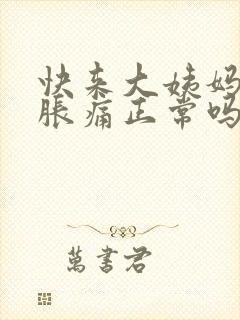 快来大姨妈
胀痛正常吗
萬書君